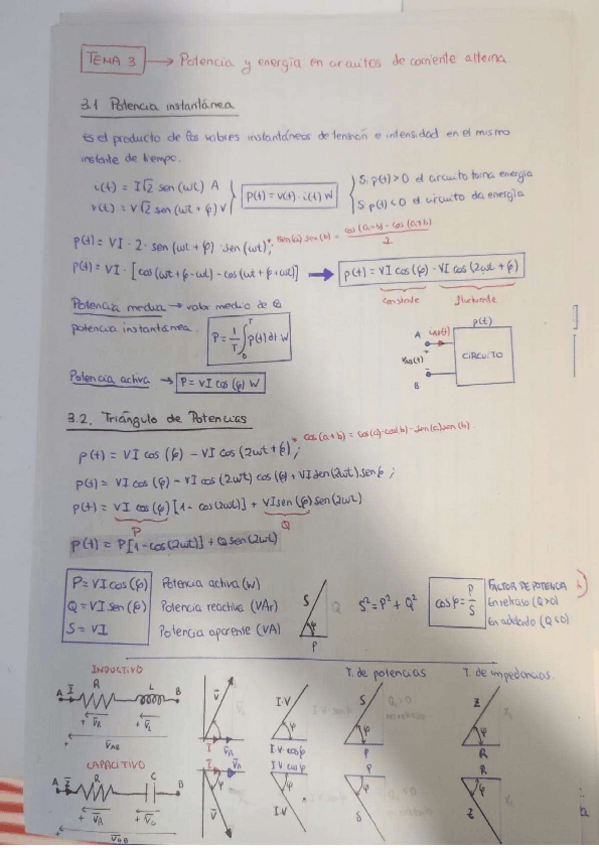 TEMA 3 → Potencia y energía en circuitos de corriente alterna
3.1 Potencia instantánea
Es el producto de los valores instantáneos de tensión e intensidad en el mismo
instante de tiempo.
i(t) = I√2 sen(ωt) A
v(t) = V√2 sen(ωt + φ) V
p(t) = v(t) · i(t) W
Si p(t)>0 el circuito toma energía
Si p(t)<0 el circuito da energía
p(t) = VI · 2 · sen(ωt + φ) · sen(ωt); * sen(a) sen(b) = cos(a-b) - cos(a+b) / 2
p(t) = VI · [cos(ωt + φ - ωt) - cos(ωt + φ + ωt)] → p(t) = VI cos(φ) - VI cos(2ωt + φ)
constante fluctuante
Potencia media → valor medio de la
potencia instantánea.
P = 1/T ∫₀ᵀ p(t) dt W
p(t)
A i(t)
+
CIRCUITO
B
Potencia activa → P = VI cos(φ) W
3.2. Triángulo de Potencias
* cos(a+b) = cos(a)·cos(b) - sen(a)sen(b).
p(t) = VI cos(φ) - VI cos(2ωt + φ);
p(t) = VI cos(φ) - VI cos(2ωt) cos(φ) + VI sen(2ωt) sen φ;
p(t) = VI cos(φ) [1 - cos(2ωt)] + VI sen(φ) sen(2ωt)
P Q
p(t) = P[1 - cos(2ωt)] + Q sen(2ωt)
P = VI cos(φ) Potencia activa (W)
Q = VI sen(φ) Potencia reactiva (VAr)
S = VI Potencia aparente (VA)
S Q
φ
P
S² = P² + Q²
cos φ = P/S
FACTOR DE POTENCIA
En retraso (Q>0)
En adelanto (Q<0)
INDUCTIVO T. de potencias T. de impedancias
A I R L B
V_R V_L
V_AB
V φ I V_R
I·V φ I·V·cosφ
S φ P
Z φ R
CAPACITIVO
A I R C B
V_R V_C
V_AB
V_R φ V
I·V·cosφ φ I·V
P φ S
R φ Z